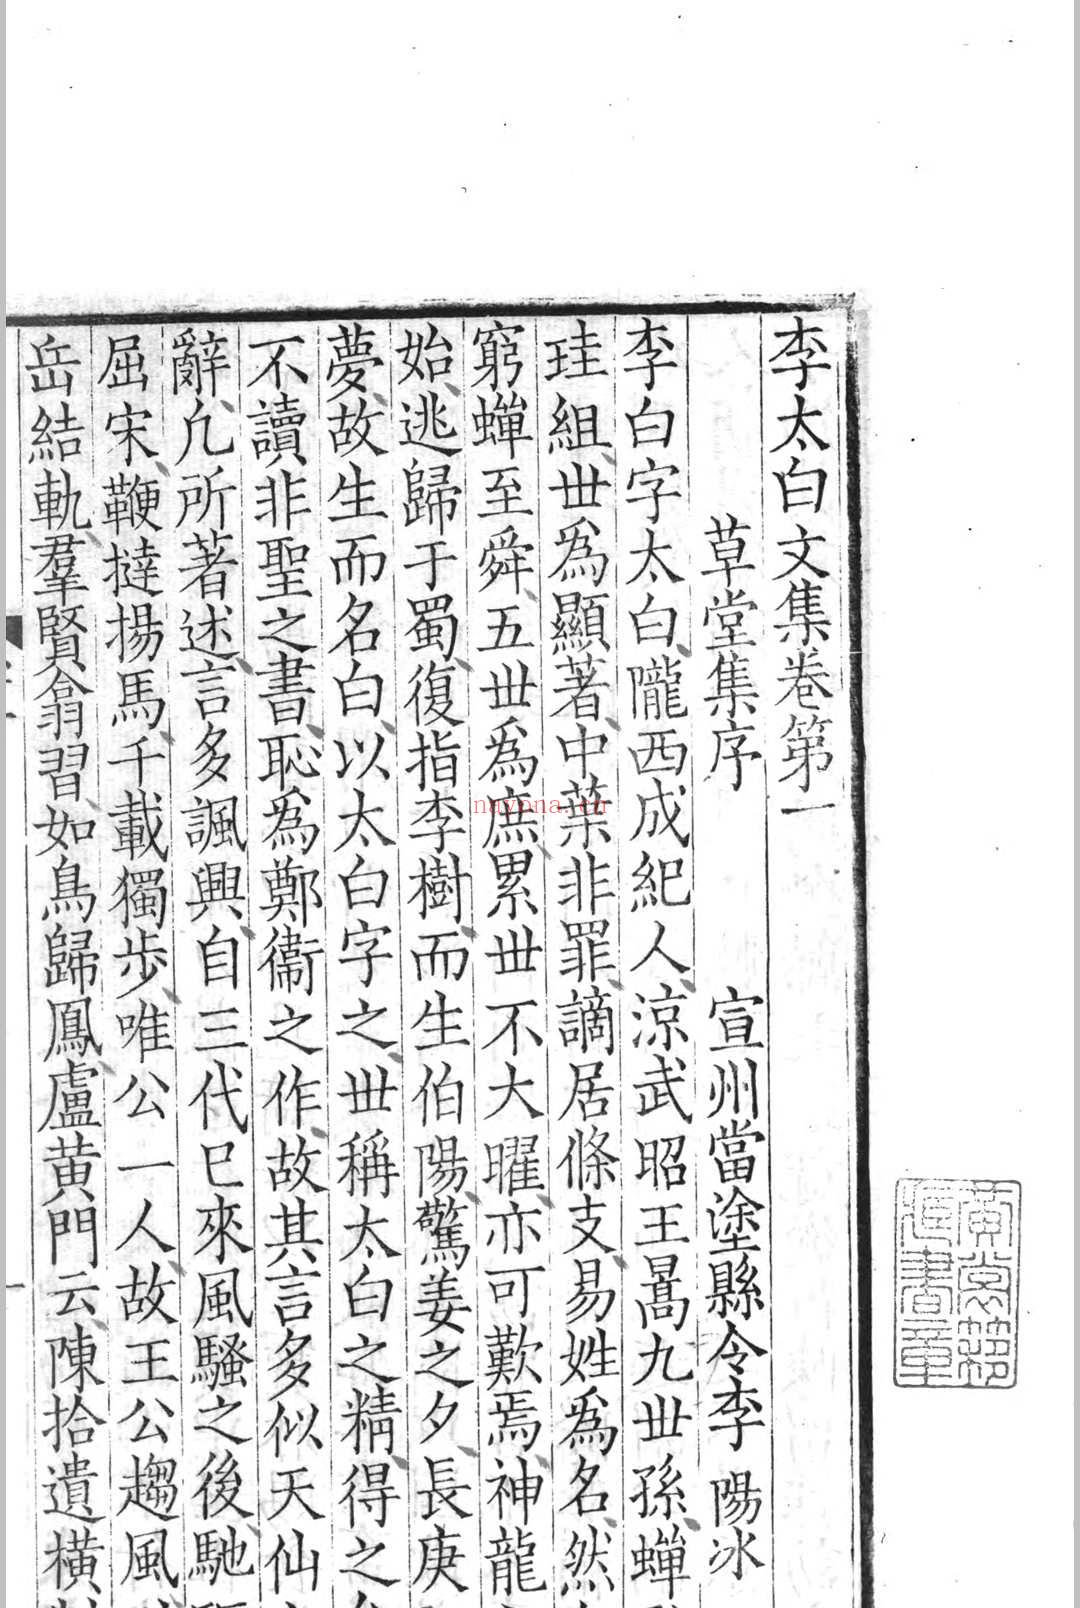 李太白文集卷第一
草堂集序 宣州當塗縣令李 陽冰
李白字太白隴西成紀人涼武昭王暠九世孫蟬
珪組世爲顯著中葉非罪謫居條支易姓爲名然
窮蟬至舜五世爲庶累世不大曜亦可歎焉神龍
始逃歸于蜀復指李樹而生伯陽驚姜之夕長庚
夢故生而名白以太白字之世稱太白之精得之
不讀非聖之書恥爲鄭衞之作故其言多似天仙
辭凢所著述言多諷興自三代已來風騷之後馳
屈宋鞭撻揚馬千載獨步唯公一人故王公趨風
岳結軌羣賢翕習如鳥歸鳳盧黃門云陳拾遺橫
nayona.cn